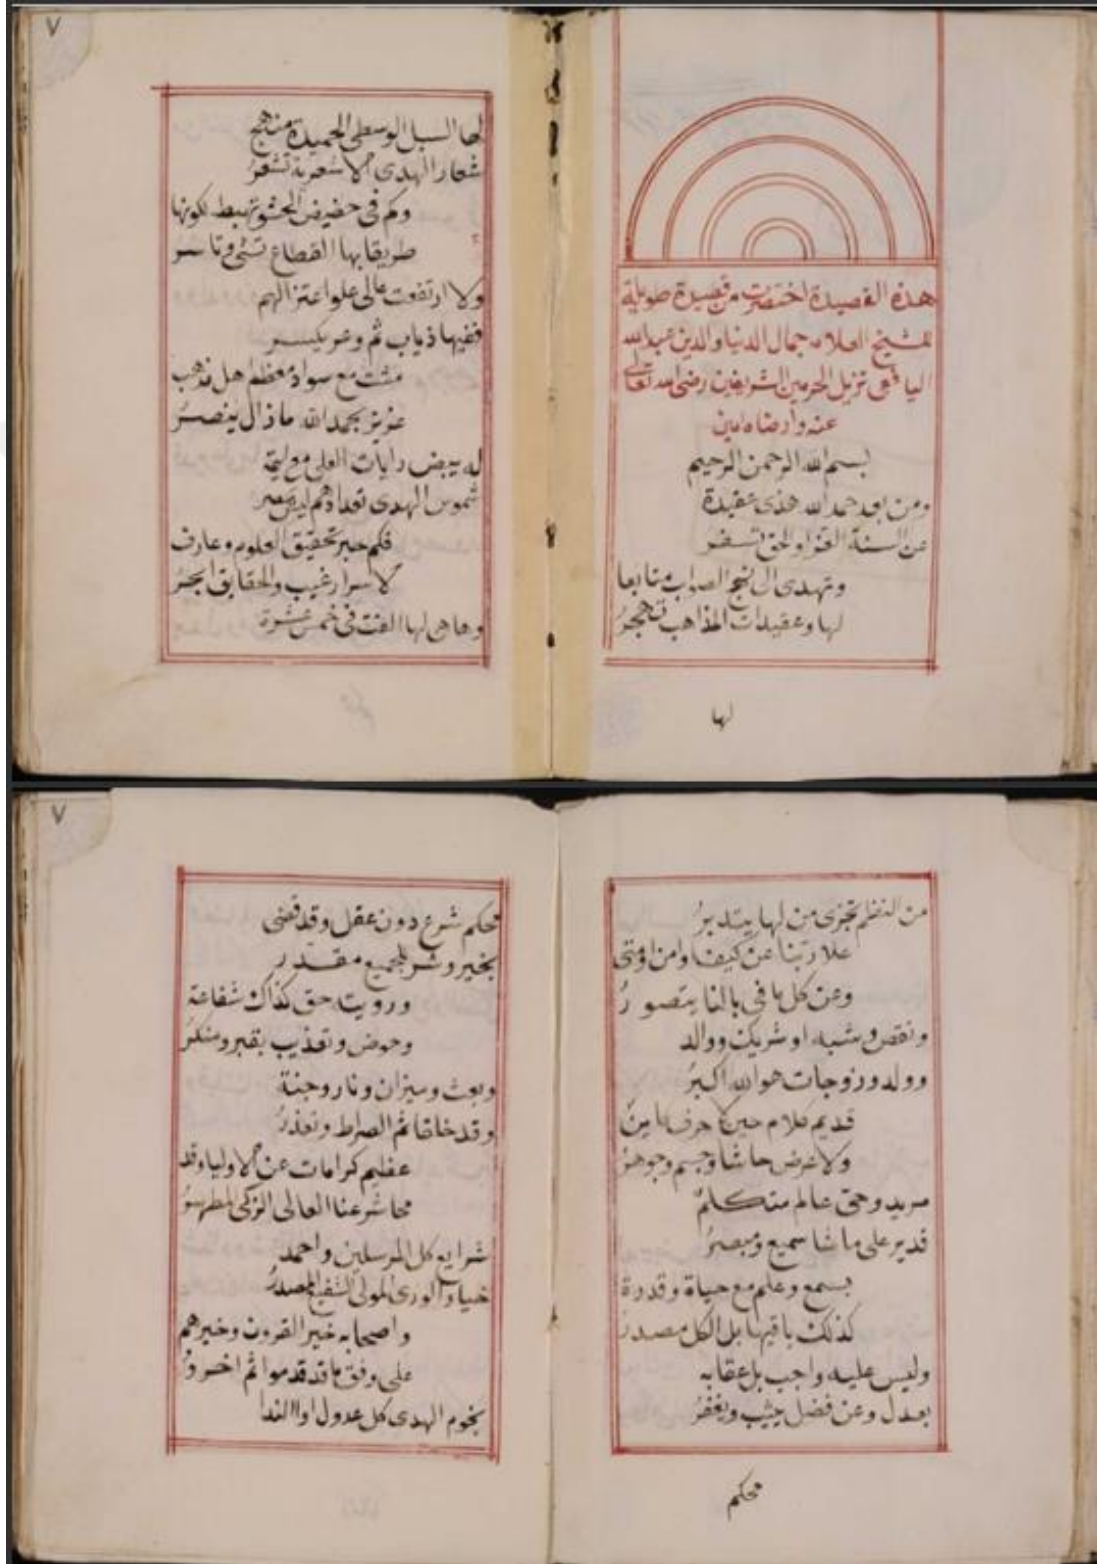 هذه القصيدة اختصرت من قصيدة طويلة
للشيخ العلامه جمال الدنيا والدين عبدالله
اليافعى نزيل الحرمين الشريفين رضى الله تعالى
عنه وارضاه امين
بسم الله الرحمن الرحيم
ومن بعد حمد الله هذى عقيدة
عن السنة الغرا والحق تسفر
وتهدى الى نهج الصواب متابعا
لها وعقيدات المذاهب تهجرُ
لها
٧
لها السبل الوسطى الحميدة منهج
شعار الهدى الاشعرية تشعرُ
وكم فى حضيض الحشو تهبط لكونها
طريقا بها القطاع تسبى وتاسر
ولا ارتفعت عالى علو اعتزالهم
ففيها ذياب ثم وعر يكسر
مشت مع سواد معظم اهل مذهب
عزيز بحمد الله ماذال ينصرُ
له بيض رايات العلى
شموس الهدى تعدادهم ليس
فكم حبر تحقيق العلوم وعارف
لاسرار غيب والحقايق ابحرُ
وها هى لها الفت فى خمس عشرة
من النظم تجزى من لها يتدبرُ
علا ربنا عن كيف او اين او متى
وعن كل ما فى بالنا يتصورُ
ونقص وشبه او شريك ووالد
وولد وزوجات هو الله اكبرُ
قديم كلام حين لا حرف كاين
ولا عرض حاشا وجسم وجوهرُ
مريد وحى عالم متكلمٌ
قدير على ما شا سميع ومبصرُ
بسمع وعلم مع حياة وقدرة
كذلك باقيها بل الكل مصدرُ
وليس عليه واجب بل عقابه
بعدل وعن فضل يثيب ويغفرُ
محكم
٧
محكم شرع دون عقل وقد قضى
بخير وشر للجميع مقدر
ورويته حق كذاك شفاعة
وحوض وتعذيب بقبر ومنكرُ
وبعث وميزان ونار وجنة
وقد خلقا ثم الصراط
عظيم كرامات عن الاوليا وقد
محا شرعنا العالى الزكى المطهرُ
شرايع كل المرسلين واحمد
خيار الورى المولى الشفيع المصدرُ
واصحابه خير القرون وخيرهم
على وفق ما قد قدموا ثم اخروُ
نجوم الهدى كل عدول